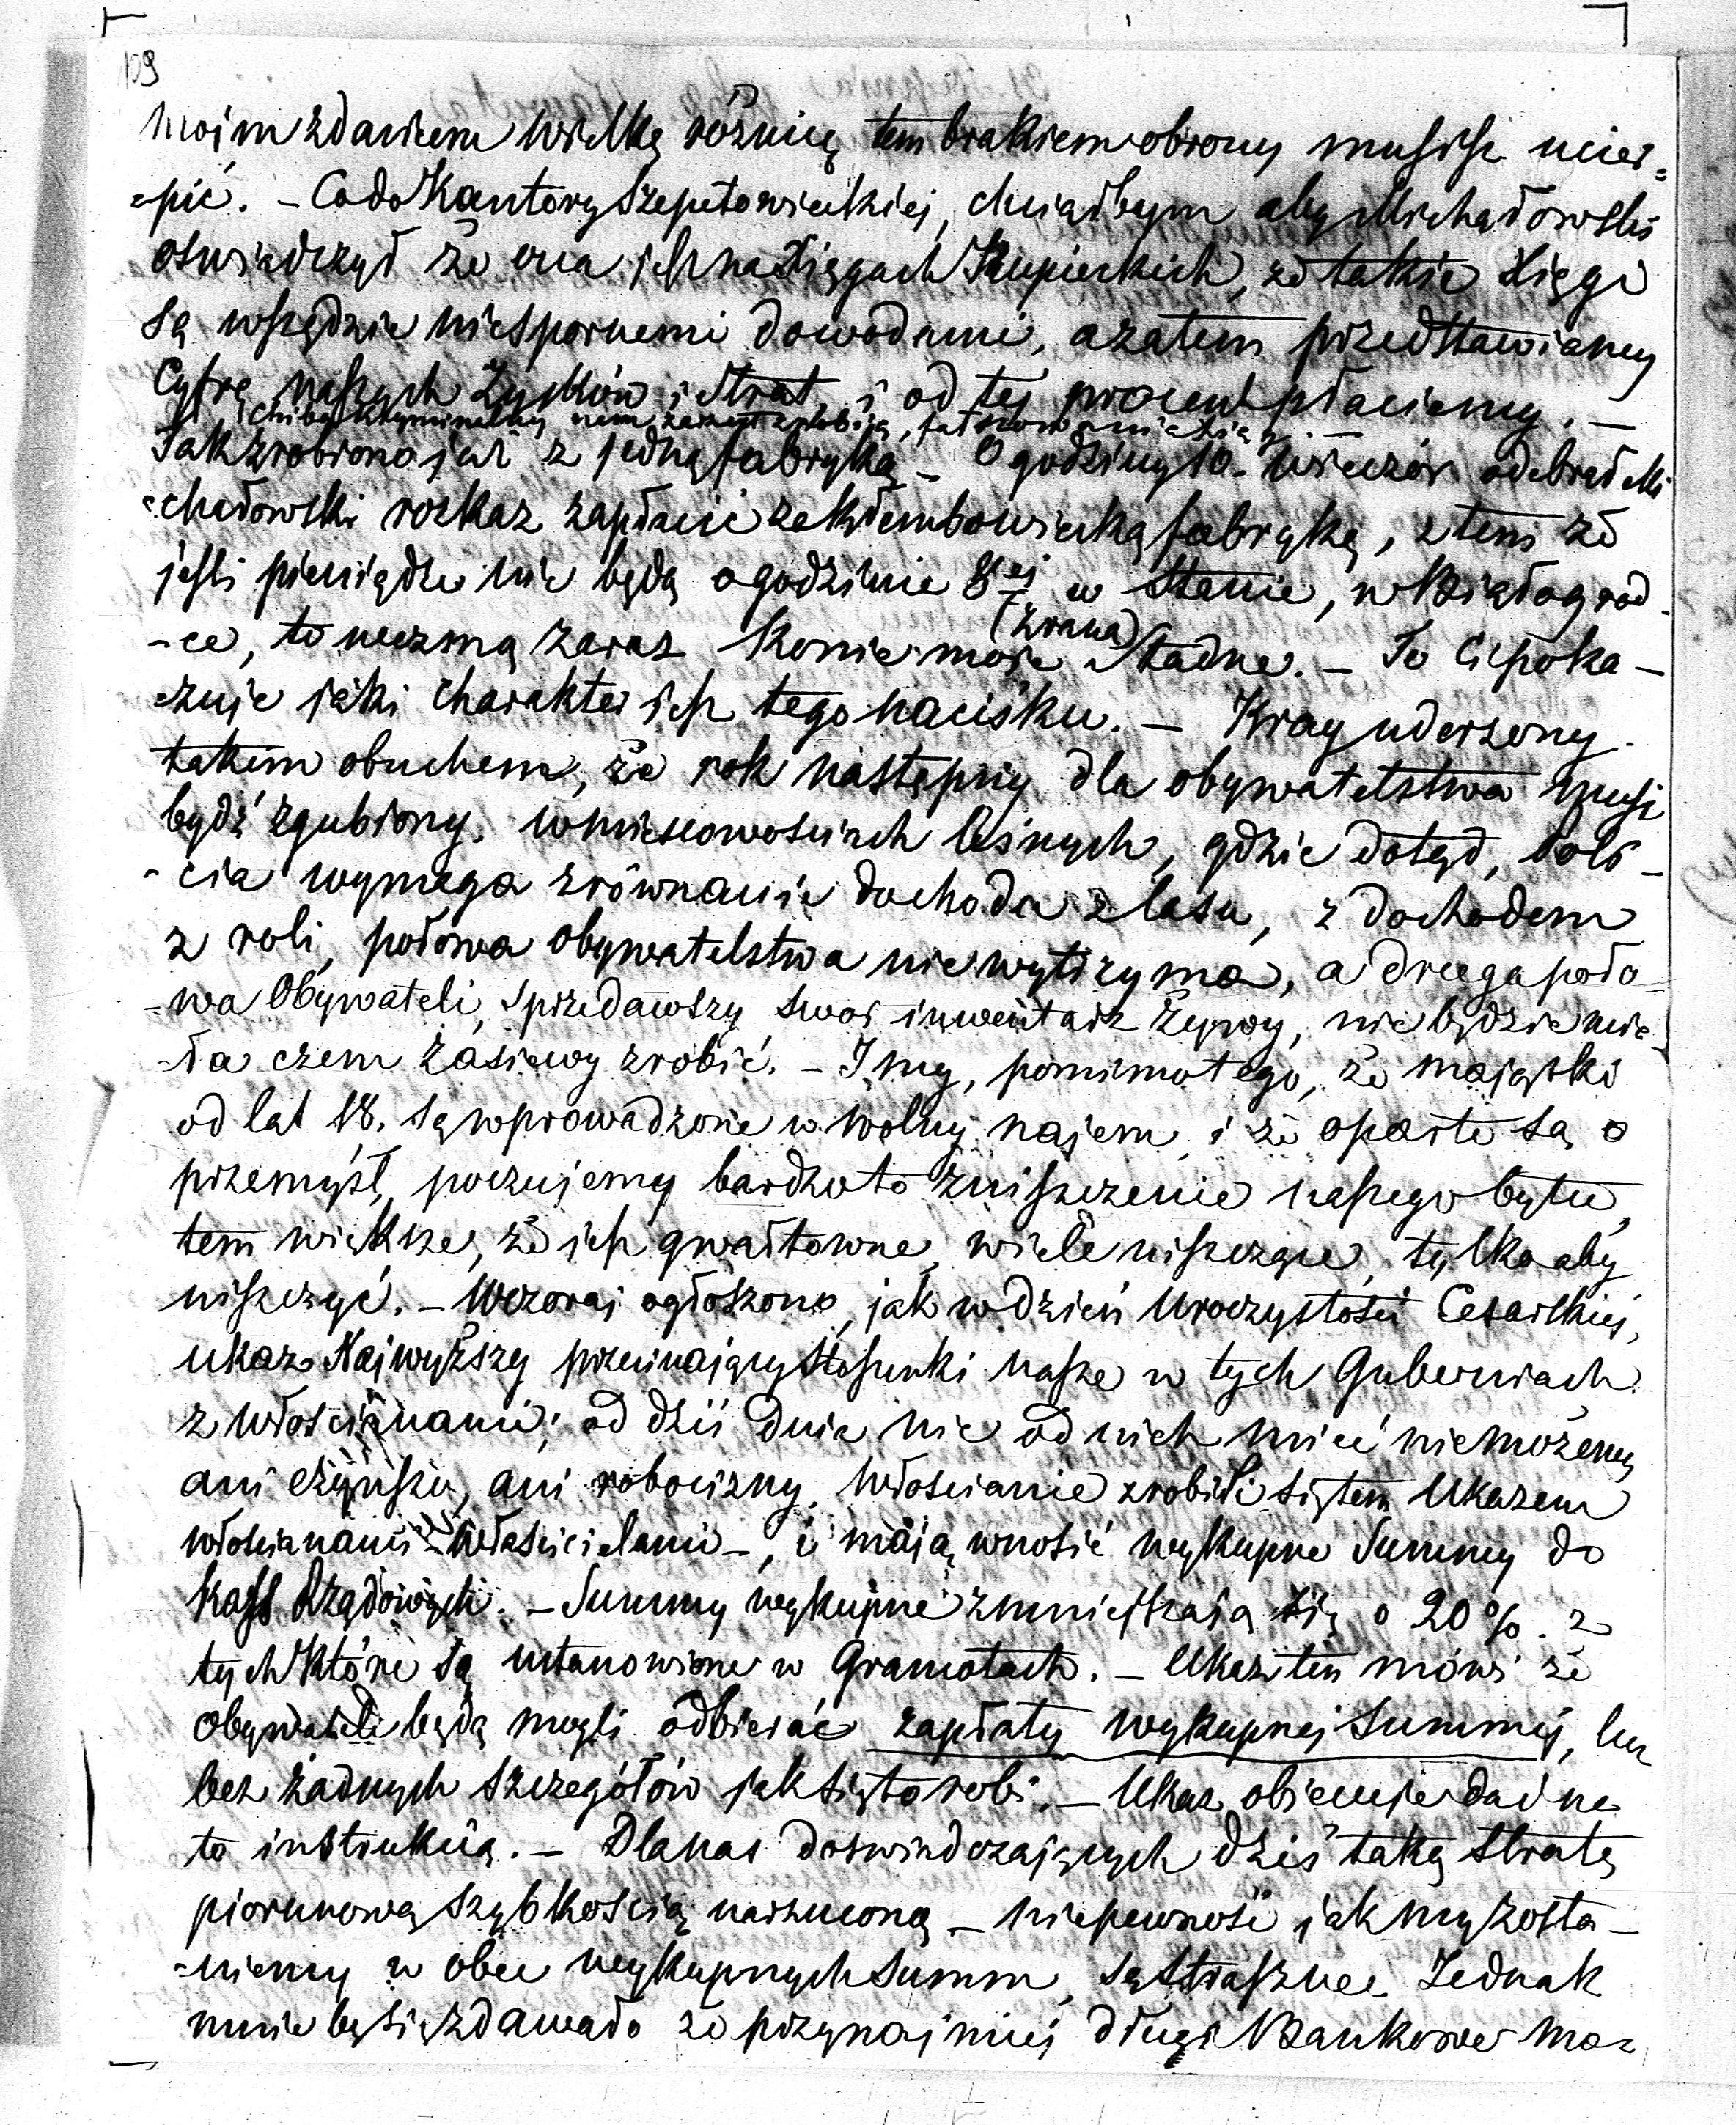 109
moim zdaniem wielką różnicę tem brakiem obrony musisz ucier=
=pić. – Co do Kantory Szepetowieckiej, chciałbym aby Michałowski
oświadczył że ona jest na Xięgach Kupieckich, że takie Xięgi
są wszędzie niespornemi dowodami, a zatem przedstawiamy
Cyfrę naszych Zysków i Strat, i od tej procent płaciemy. –
chiba kryminalny nam zarzut zrobią, fałszowania xiąg. –
Tak zrobiono już z jedną fabryką – O godziny 10. wieczór odebrał Mi
=chałowski rozkaz zapłacić za Kłembowiecką fabrykę, z tem że
jeśli pieniądze nie będą o godzinie 8ej w Stanie, w Białogrod-
(zrana)
-ce, to wezmą zaraz konie moje Stadne. – To Ci poka-
-zuje jaki charakter jest tego nacisku. – Kray uderzony
takim obuchem, że rok następny dla obywatelstwa musi
bydź zgubiony. W miescowościach leśnych, gdzie dotąd,
-cia wymaga zrównanie dochodu z lasu, z dochodem
z roli, połowa obywatelstwa nie wytrzyma, a druga poło-
-wa Obywateli, sprzedawszy swój inwentarz żywy, nie będzie mia-
-ła czem zasiewy zrobić. – I my, pomimo tego, że majątki
od lat 18. są wprowadzone w wolny najem, i że oparte są o
przemysł, poczujemy bardzo to zniszczenie naszego bytu,
tem większe, że jest gwałtowne, wiele niszczące, tylko aby
niszczyć. – Wczoraj ogłoszono, jak w dzień Uroczystości Cesarskiej,
ukaz Najwyższy przecinający stosunki nasze w tych Guberniach
z włościanami; od dziś dnia nic od nich mieć nie możemy
ani czynszu, ani robocizny. Włościanie zrobili się tem Ukazem
włościanami – właścicielami –, i mają wnosić wykupne Summy do
kass Rządowych. – Summy wykupne zmniejszają się o 20%. z
tych które są ustanowione w Gramotach. – Ukaz ten mówi że
obywateli będą mogli odbierać zapłaty wykupnej Summy, lecz
bez żadnych szczegółów jak się to robi. – Ukaz obiecuje dać na
to instrukcią. – Dla nas doświadczających dziś taką stratę
piorunową szybkością narzuconą – niepewność jak my zosta-
-niemy w obec wykupnych Summ, są straszne. Jednak
mnie by się zdawało że przynajmniej długi Bankowe mo=